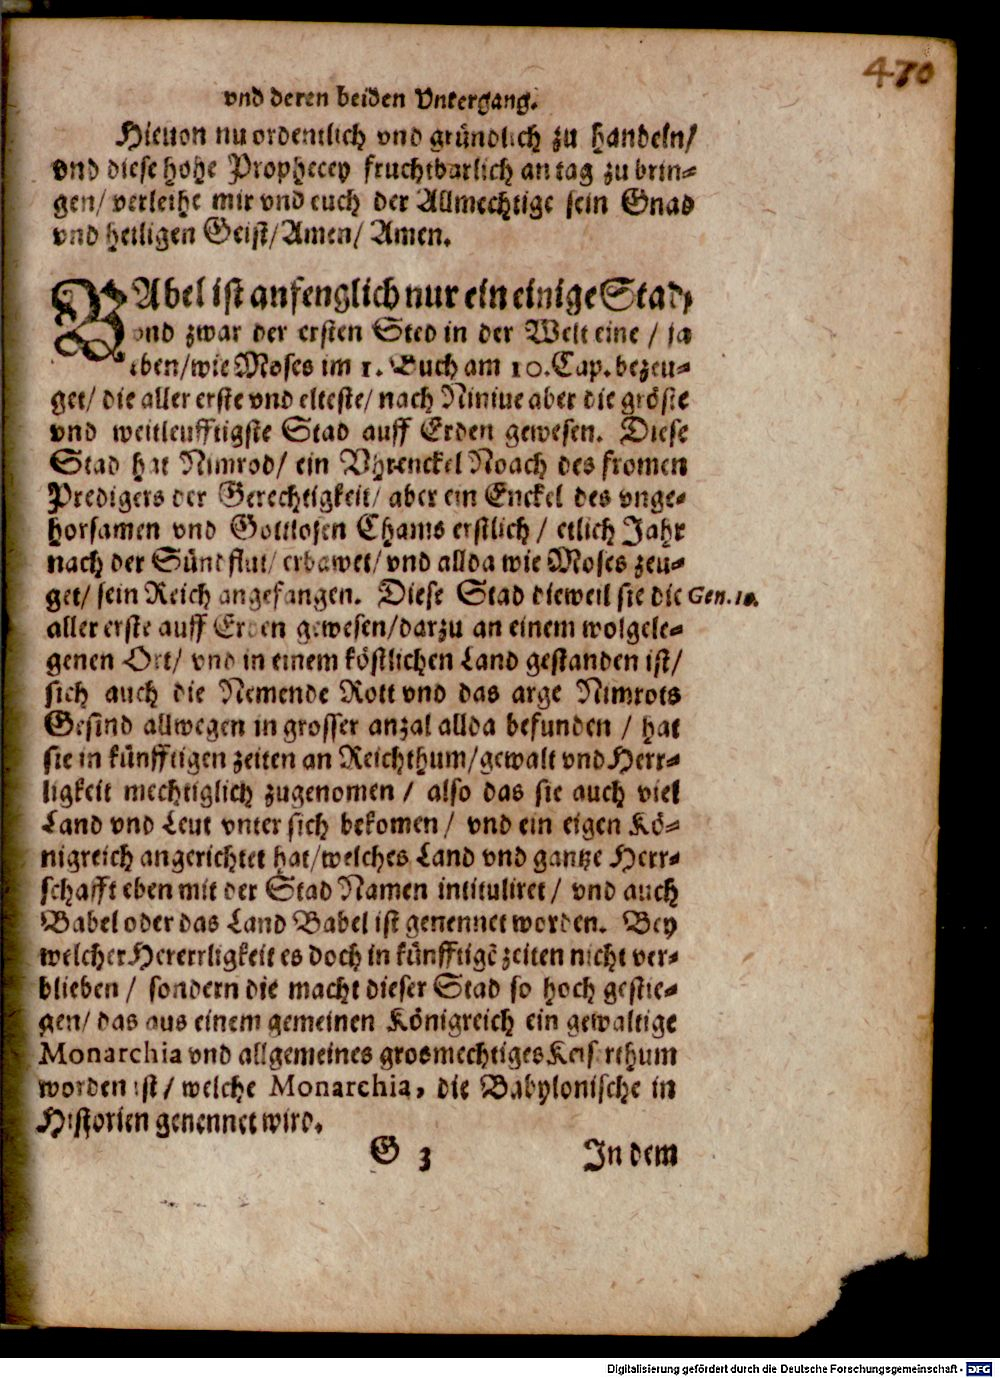 470
vnd deren beiden Vntergang.
Hieuon nu ordentlich vnd gründlich zu handeln/
vnd diese hohe Prophecey fruchtbarlich an tag zu brin⸗
gen/ verleihe mir vnd euch der Allmechtige sein Gnad
vnd heiligen Geist/ Amen/ Amen.
BAbel ist anfenglich nur ein einige Stad,
vnd zwar der ersten Sted in der Welt eine / ja
eben/ wie Moses im 1. Buch am 10. Cap. bezeu⸗
get/ die aller erste vnd elteste/ nach Niniue aber die gröste
vnd weitleufftigste Stad auff Erden gewesen. Diese
Stad hat Nimrod/ ein Vhrenckel Noach des fromen
Predigers der Gerechtigkeit/ aber ein Enckel des vnge⸗
horsamen vnd Gottlosen Chams erstlich / etlich Jahr
nach der Sündflut/ erbawet/ vnd allda wie Moses zeu⸗
get/ sein Reich angefangen. Diese Stad dieweil sie die Gen. 10.
aller erste auff Erden gewesen/ darzu an einem wolgele⸗
genen Ort/ vnd in einem köstlichen Land gestanden ist/
sich auch die Nemende Rott vnd das arge Nimrots
Gesind allwegen in grosser anzal allda befunden / hat
sie in künfftigen zeiten an Reichthum/ gewalt vnd Herr⸗
ligkeit mechtiglich zugenomen / also das sie auch viel
Land vnd Leut vnter sich bekomen / vnd ein eigen Kö⸗
nigreich angerichtet hat/ welches Land vnd gantze Herr⸗
schafft eben mit der Stad Namen intituliret / vnd auch
Babel oder das Land Babel ist genennet worden. Bey
welcher Hererrligkeit es doch in künfftigē zeiten nicht ver⸗
blieben / sondern die macht dieser Stad so hoch gestie⸗
gen/ das aus einem gemeinen Königreich ein gewaltige
Monarchia vnd allgemeines grosmechtiges Keiserthum
worden ist / welche Monarchia, die Babylonische in
Historien genennet wird.
G 3 In dem
Digitalisierung gefördert durch die Deutsche Forschungsgemeinschaft - DFG